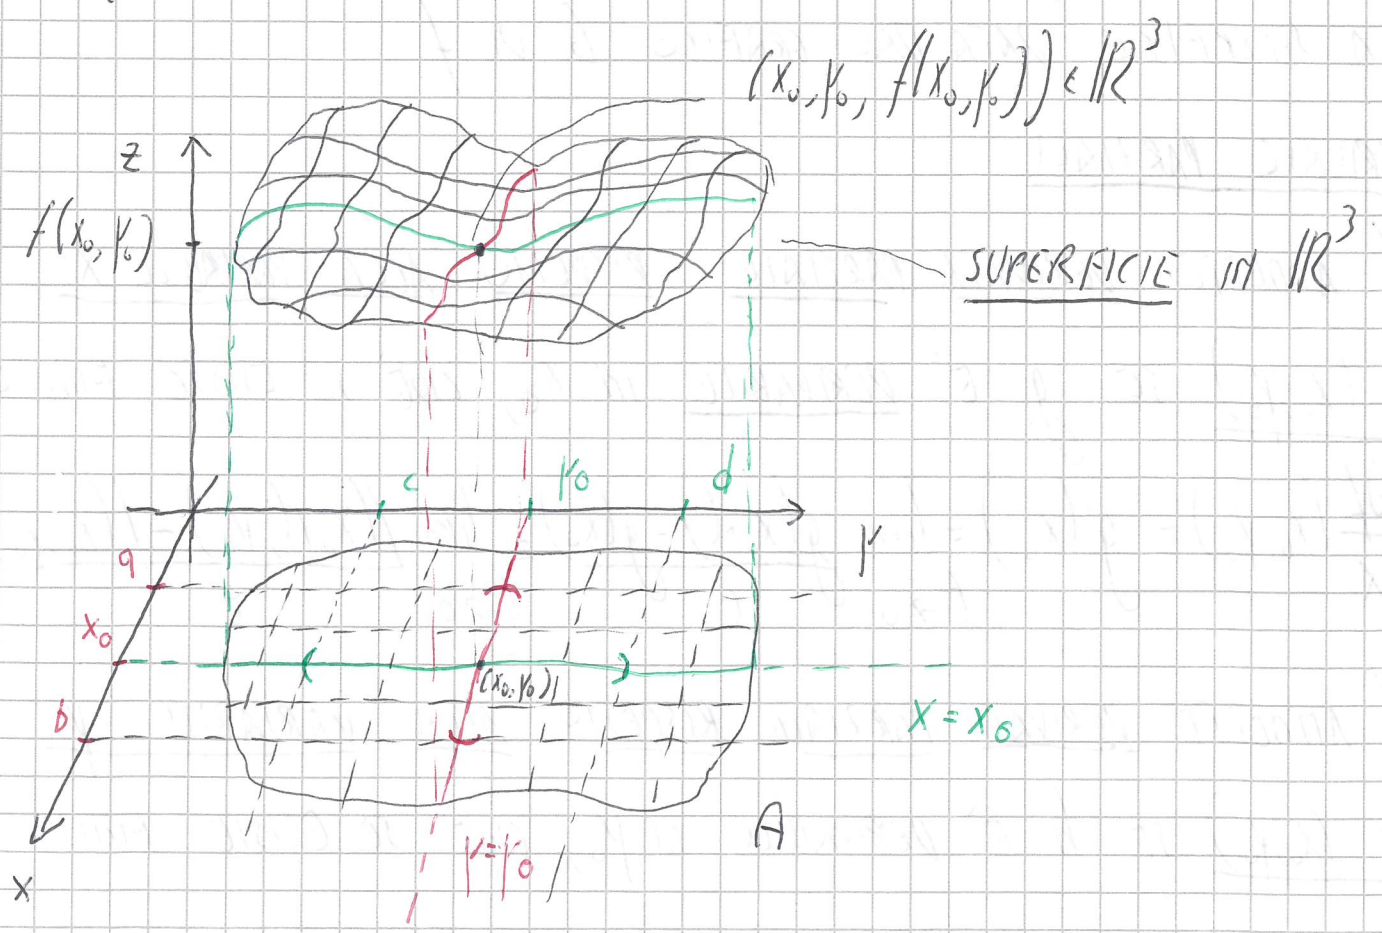 (x₀, y₀, f(x₀, y₀)) ∈ ℝ³
z
f(x₀, y₀)
SUPERFICIE IN ℝ³
c
y₀
d
y
a
x₀
(x₀, y₀)
b
x = x₀
A
y = y₀
x